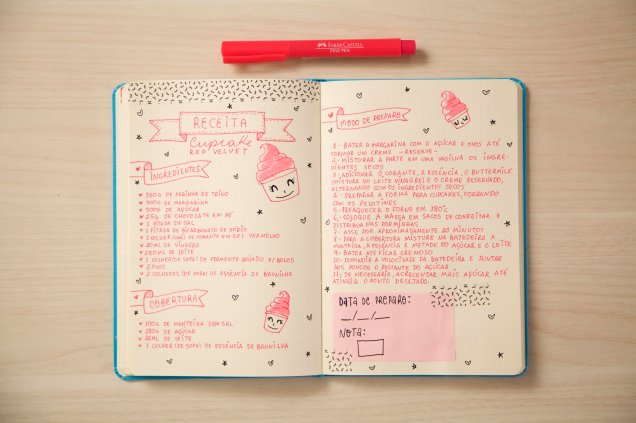 FABER-CASTELL
FINE PEN
RECEITA
Cupcake
RED VELVET
INGREDIENTES
300G DE FARINHA DE TRIGO
300G DE MARGARINA
300G DE AÇÚCAR
25G DE CHOCOLATE EM PÓ
1 PITADA DE SAL
1 PITADA DE BICARBONATO DE SÓDIO
1 COLHER (CHÁ) DE CORANTE EM GEL VERMELHO
20ML DE VINAGRE
250ML DE LEITE
1 COLHER (SOPA) DE FERMENTO QUÍMICO P/ BOLOS
OVOS
2 COLHERES (DE SOPA) DE ESSÊNCIA DE BAUNILHA
COBERTURA
100G DE MANTEIGA SEM SAL
DE AÇÚCAR
45ML DE LEITE
1 COLHER (DE SOPA) DE ESSÊNCIA DE BAUNILHA
MODO DE PREPARO
1- BATER A MARGARINA COM O AÇÚCAR E OVOS ATÉ
FORMAR UM CREME - RESERVE -
2- MISTURAR À PARTE EM UMA VASILHA OS INGRE-
DIENTES SECOS
3- ADICIONAR O CORANTE, A ESSÊNCIA, O BUTTERMILK
(MISTURA DO LEITE VINAGRE) E O CREME RESERVADO,
ALTERNANDO COM OS INGREDIENTES SECOS
4- PREPARAR A FORMA PARA CUPCAKES, FORRANDO
COM OS PELOTINES
5- PREAQUECER O FORNO EM 180°C
6- COLOQUE A MASSA EM SACOS DE CONFEITAR E
DISTRIBUA NAS FORMINHAS
7- ASSE POR APROXIMADAMENTE MINUTOS
8- PARA A COBERTURA MISTURE NA BATEDEIRA A
MANTEIGA, A ESSÊNCIA E METADE DO AÇÚCAR E O LEITE
9- BATER ATÉ FICAR CREMOSO
10- DIMINUIR A VELOCIDADE DA BATEDEIRA E JUNTAR
AOS POUCOS O RESTANTE DO AÇÚCAR
11- SE NECESSÁRIO, ACRESCENTAR MAIS AÇÚCAR ATÉ
ATINGIR O PONTO DESEJADO.
DATA DE PREPARO:
__/__/__
NOTA: